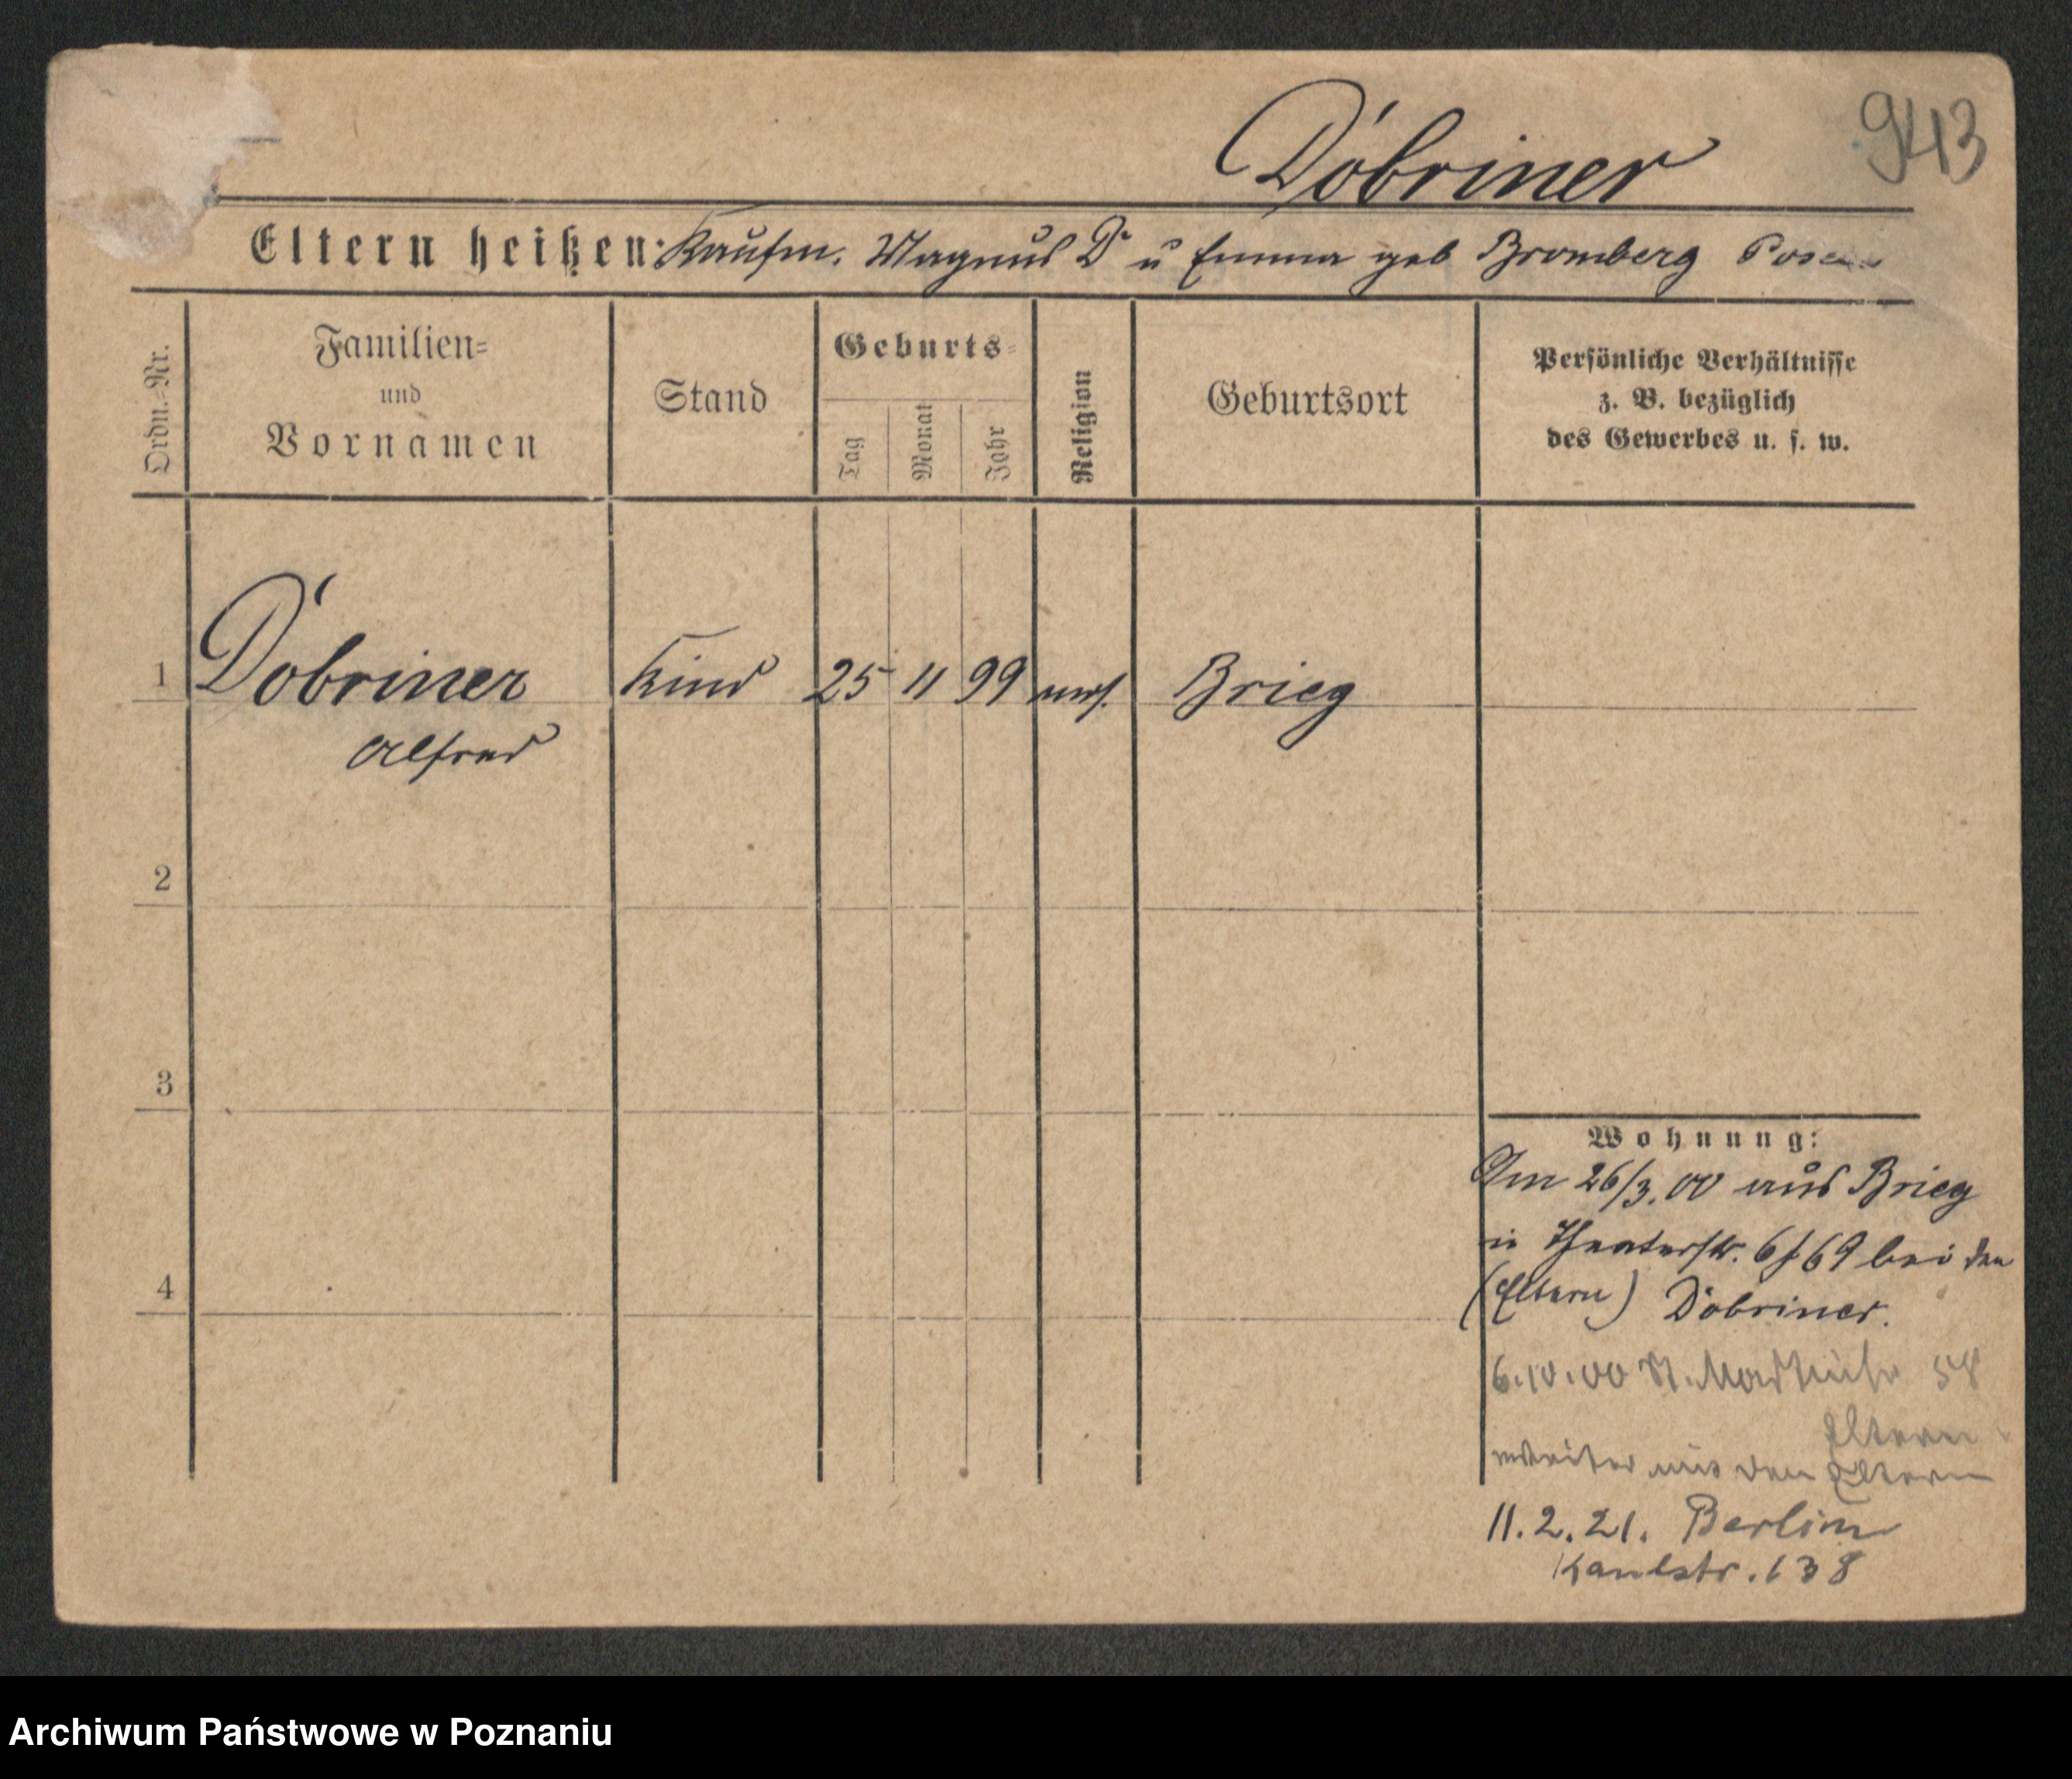 943
Dobriner
Eltern heißen: Kaufm. Magnus D u Emma geb Bromberg Posen
Ordn.-Nr.
Familien- und Vornamen
Stand
Geburts-
Tag
Monat
Jahr
Religion
Geburtsort
Persönliche Verhältnisse
z. B. bezüglich
des Gewerbes u. s. w.
1 Dobriner Kind 25 11 99 mos. Brieg
Alfred
2
3
4
Wohnung:
Am 26/3.00 aus Brieg
in Theaterstr. 69 bei den
(Eltern) Dobriner.
6.10.00 St. Martinstr 58
Eltern
weiter mit den Eltern
11.2.21. Berlin
138
Archiwum Państwowe w Poznaniu